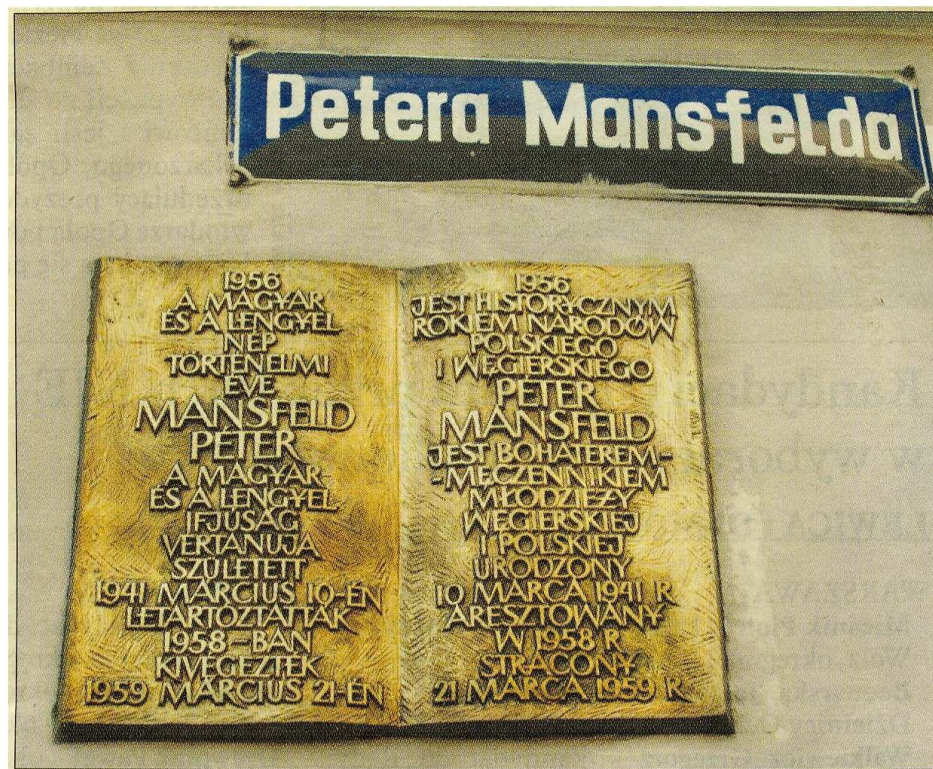 Petera Mansfelda
1956
A MAGYAR
ÉS A LENGYEL
NÉP
TÖRTÉNELMI
ÉVE
MANSFELD
PÉTER
A MAGYAR-
ÉS A LENGYEL
IFJÚSÁG
VÉRTANÚJA
SZÜLETETT
1941 MÁRCIUS 10-ÉN
LETARTÓZTATTÁK
1958-BAN
KIVÉGEZTÉK
1959 MÁRCIUS 21-ÉN
1956
JEST HISTORYCZNYM
ROKIEM NARODÓW
POLSKIEGO
I WĘGIERSKIEGO
PÉTER
MANSFELD
JEST BOHATEREM-
-MĘCZENNIKIEM
MŁODZIEŻY
WĘGIERSKIEJ
I POLSKIEJ
URODZONY
10 MARCA 1941 R
ARESZTOWANY
W 1958 R
STRACONY
21 MARCA 1959 R